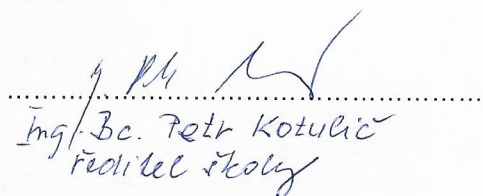 Ing. Bc. Petr Kotulič
ředitel školy